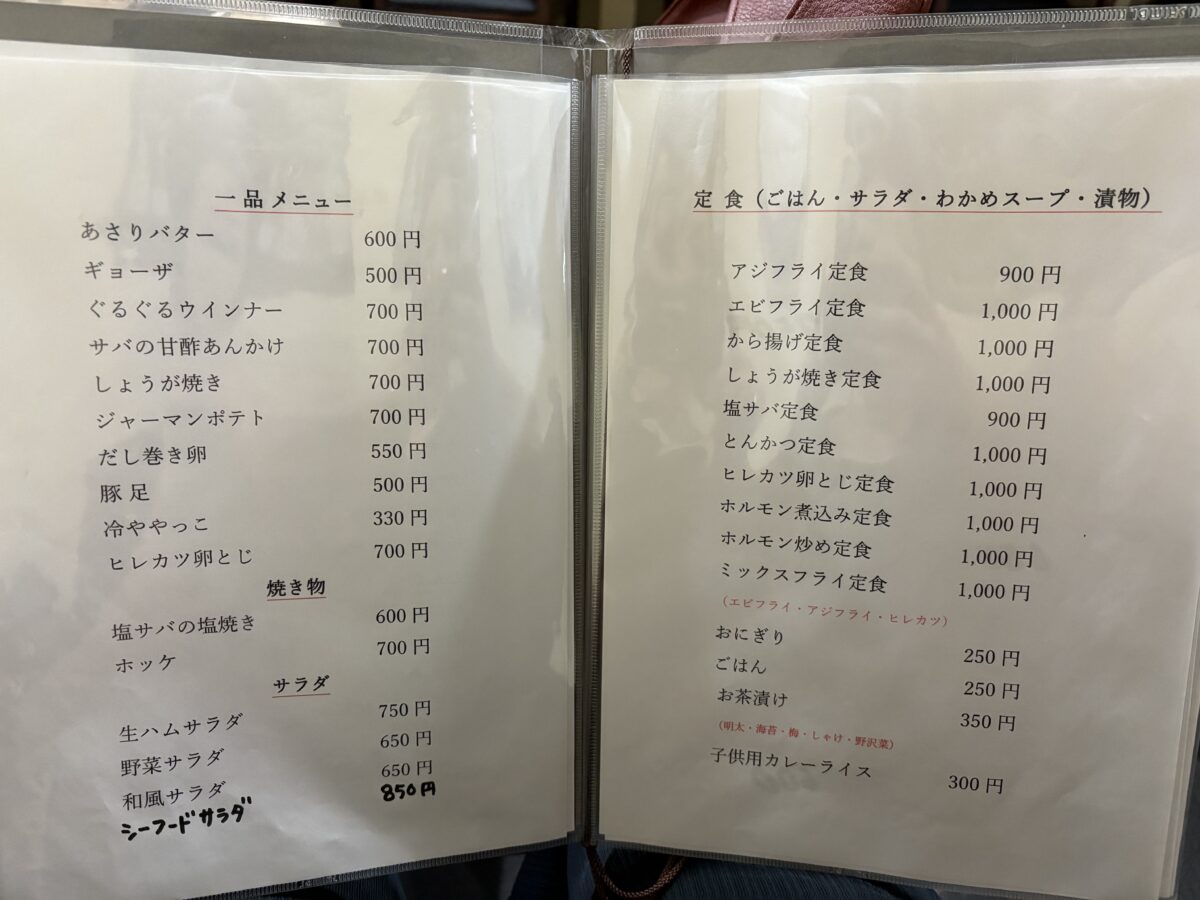 一品メニュー
あさりバター 600円
ギョーザ 500円
ぐるぐるウインナー 700円
サバの甘酢あんかけ 700円
しょうが焼き 700円
ジャーマンポテト 700円
だし巻き卵 550円
豚足 500円
冷ややっこ 330円
ヒレカツ卵とじ 700円
焼き物
塩サバの塩焼き 600円
ホッケ 700円
サラダ
生ハムサラダ 750円
野菜サラダ 650円
和風サラダ 650円
シーフードサラダ 850円
定食(ごはん・サラダ・わかめスープ・漬物)
アジフライ定食 900円
エビフライ定食 1,000円
から揚げ定食 1,000円
しょうが焼き定食 1,000円
塩サバ定食 900円
とんかつ定食 1,000円
ヒレカツ卵とじ定食 1,000円
ホルモン煮込み定食 1,000円
ホルモン炒め定食 1,000円
ミックスフライ定食 1,000円
(エビフライ・アジフライ・ヒレカツ)
おにぎり 250円
ごはん 250円
お茶漬け 350円
(明太・海苔・梅・しゃけ・野沢菜)
子供用カレーライス 300円